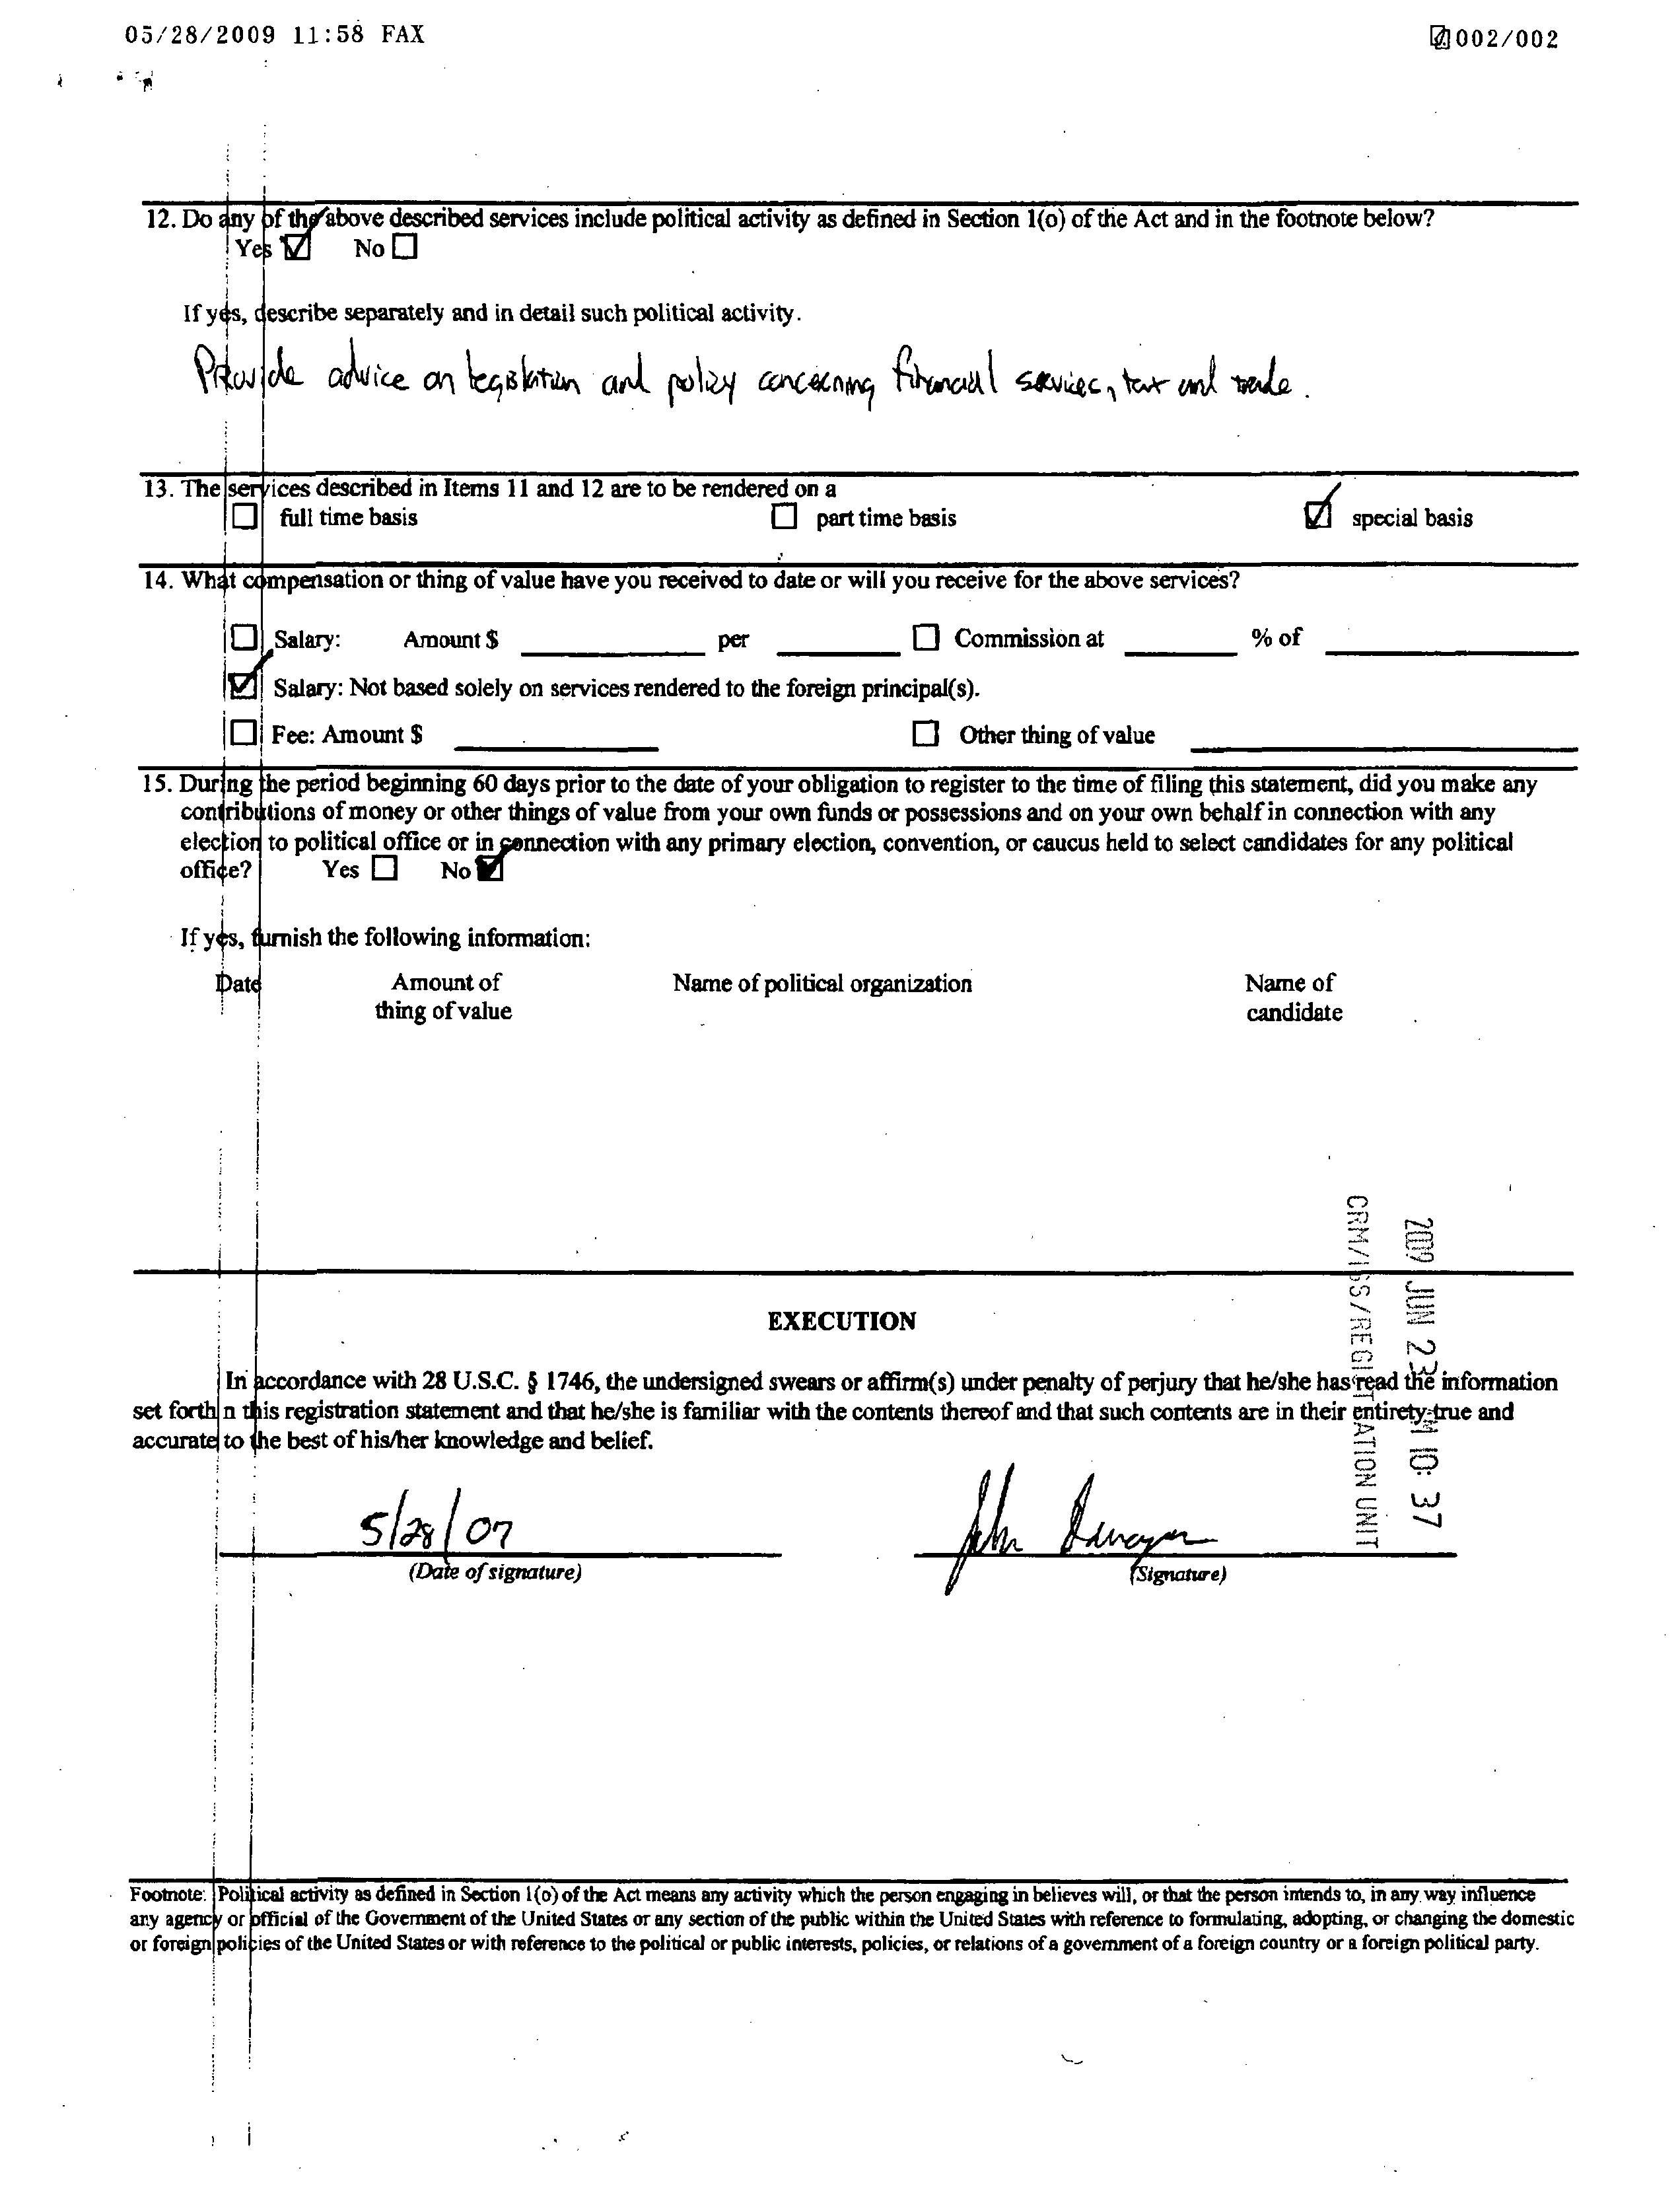 05/28/2009 11:58 FAX
002/002
12. Do any of the above described services include political activity as defined in Section 1(o) of the Act and in the footnote below?
Yes No
If yes, describe separately and in detail such political activity.
Provide advice on legislation and policy concerning financial services, tax and trade.
13. The services described in Items 11 and 12 are to be rendered on a
full time basis part time basis special basis
14. What compensation or thing of value have you received to date or will you receive for the above services?
Salary: Amount $ per Commission at % of
Salary: Not based solely on services rendered to the foreign principal(s).
Fee: Amount $ Other thing of value
15. During the period beginning 60 days prior to the date of your obligation to register to the time of filing this statement, did you make any
contributions of money or other things of value from your own funds or possessions and on your own behalf in connection with any
election to political office or in connection with any primary election, convention, or caucus held to select candidates for any political
office? Yes No
If yes, furnish the following information:
Date Amount of Name of political organization Name of
thing of value candidate
2009 JUN 23 AM 10: 37
CRM/ISS/REGISTRATION UNIT
EXECUTION
In accordance with 28 U.S.C. § 1746, the undersigned swears or affirm(s) under penalty of perjury that he/she has read the information
set forth n this registration statement and that he/she is familiar with the contents thereof and that such contents are in their entirety true and
accurate to the best of his/her knowledge and belief.
5/28/09 John
(Date of signature) (Signature)
Footnote: Political activity as defined in Section 1(o) of the Act means any activity which the person engaging in believes will, or that the person intends to, in any way influence
any agency or official of the Government of the United States or any section of the public within the United States with reference to formulating, adopting, or changing the domestic
or foreign policies of the United States or with reference to the political or public interests, policies, or relations of a government of a foreign country or a foreign political party.